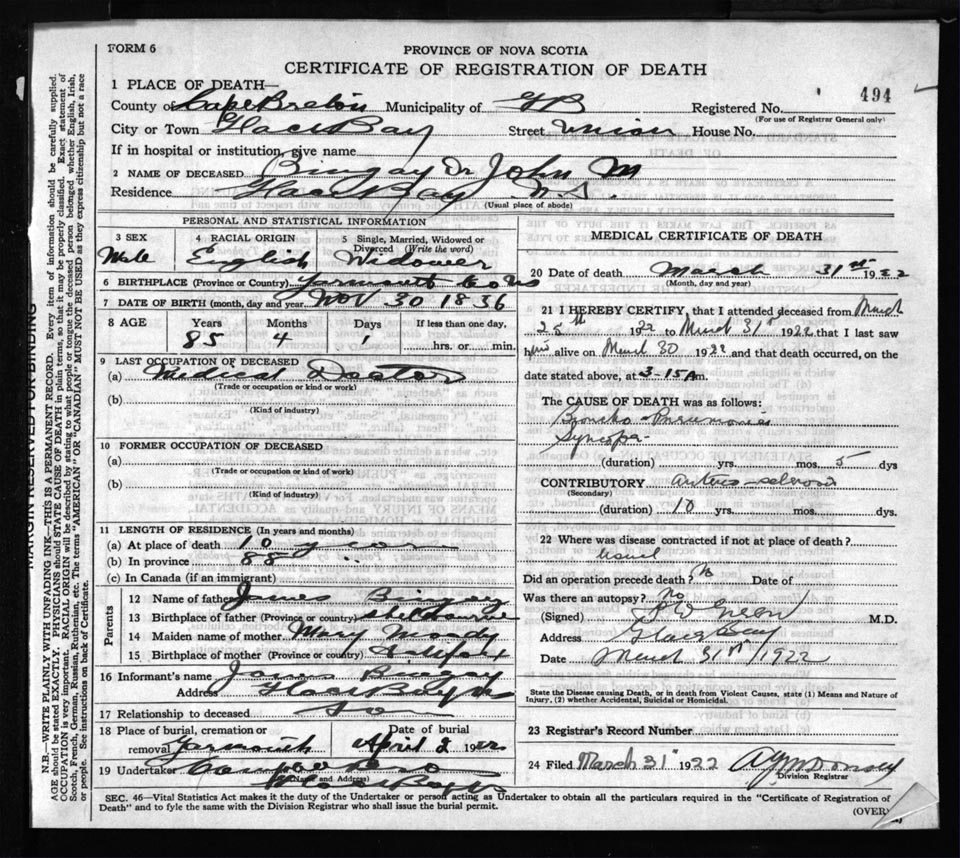 FORM 6
PROVINCE OF NOVA SCOTIA
CERTIFICATE OF REGISTRATION OF DEATH
494
1 PLACE OF DEATH—
County of Cape Breton Municipality of GB Registered No.
(For use of Registrar General only)
City or Town Glace Bay Street Union House No.
If in hospital or institution, give name
2 NAME OF DECEASED Bingay Dr John M
Residence Glace Bay N.S.
(Usual place of abode)
PERSONAL AND STATISTICAL INFORMATION
3 SEX Male
4 RACIAL ORIGIN English
5 Single, Married, Widowed or Divorced (Write the word) Widower
6 BIRTHPLACE (Province or Country) Yarmouth Co NS
7 DATE OF BIRTH (month, day and year) Nov 30 1836
8 AGE Years 85 Months 4 Days 1 If less than one day, hrs. or min.
9 LAST OCCUPATION OF DECEASED
(a) Medical Doctor
(Trade or occupation or kind of work)
(b)
(Kind of industry)
10 FORMER OCCUPATION OF DECEASED
(a)
(Trade or occupation or kind of work)
(b)
(Kind of industry)
11 LENGTH OF RESIDENCE (In years and months)
(a) At place of death 10 years
(b) In province 88 "
(c) In Canada (if an immigrant)
Parents
12 Name of father James Bingay
13 Birthplace of father (Province or country) Shelburne
14 Maiden name of mother Mary Moody
15 Birthplace of mother (Province or country) Halifax
16 Informant's name James Bingay
Address Glace Bay NS
17 Relationship to deceased Son
18 Place of burial, cremation or removal Yarmouth Date of burial April 2 1922
19 Undertaker
(Name and Address)
MEDICAL CERTIFICATE OF DEATH
20 Date of death March 31st 1922
(Month, day and year)
21 I HEREBY CERTIFY, that I attended deceased from March
25th 1922 to March 31st 1922 that I last saw
him alive on March 30 1922 and that death occurred, on the
date stated above, at 3-15 Am.
The CAUSE OF DEATH was as follows:
Broncho-Pneumonia
Syncope
(duration) yrs. mos. 5 dys
CONTRIBUTORY Arterio-sclerosis
(Secondary)
(duration) 10 yrs. mos. dys.
22 Where was disease contracted if not at place of death?
Did an operation precede death? No Date of
Was there an autopsy? No
(Signed) Green M.D.
Address Glace Bay
Date March 31st/1922
State the Disease causing Death, or in death from Violent Causes, state (1) Means and Nature of Injury, (2) whether Accidental, Suicidal or Homicidal.
23 Registrar's Record Number
24 Filed March 31 1922
Division Registrar
SEC. 46—Vital Statistics Act makes it the duty of the Undertaker or person acting as Undertaker to obtain all the particulars required in the "Certificate of Registration of
Death" and to fyle the same with the Division Registrar who shall issue the burial permit.
(OVER)
MARGIN RESERVED FOR BINDING
N.B.—WRITE PLAINLY WITH UNFADING INK—THIS IS A PERMANENT RECORD. Every item of information should be carefully supplied.
AGE should be stated EXACTLY. PHYSICIANS should STATE CAUSE OF DEATH in plain terms, so that it may be properly classified. Exact statement of
OCCUPATION is very important. RACIAL ORIGIN will be described by stating to what people or tongue the deceased person belonged whether English, Irish,
Scotch, French, German, Russian, Ruthenian, etc. The terms "AMERICAN" OR "CANADIAN" MUST NOT BE USED as they express citizenship but not a race
or people. See instructions on back of Certificate.